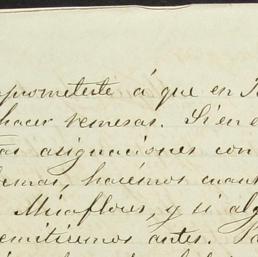 prometerte á que en
hacer remesas. Si en e
as asignaciones con
demas, hacemos cuant
Miraflores, y si alg
emitiremos antes.